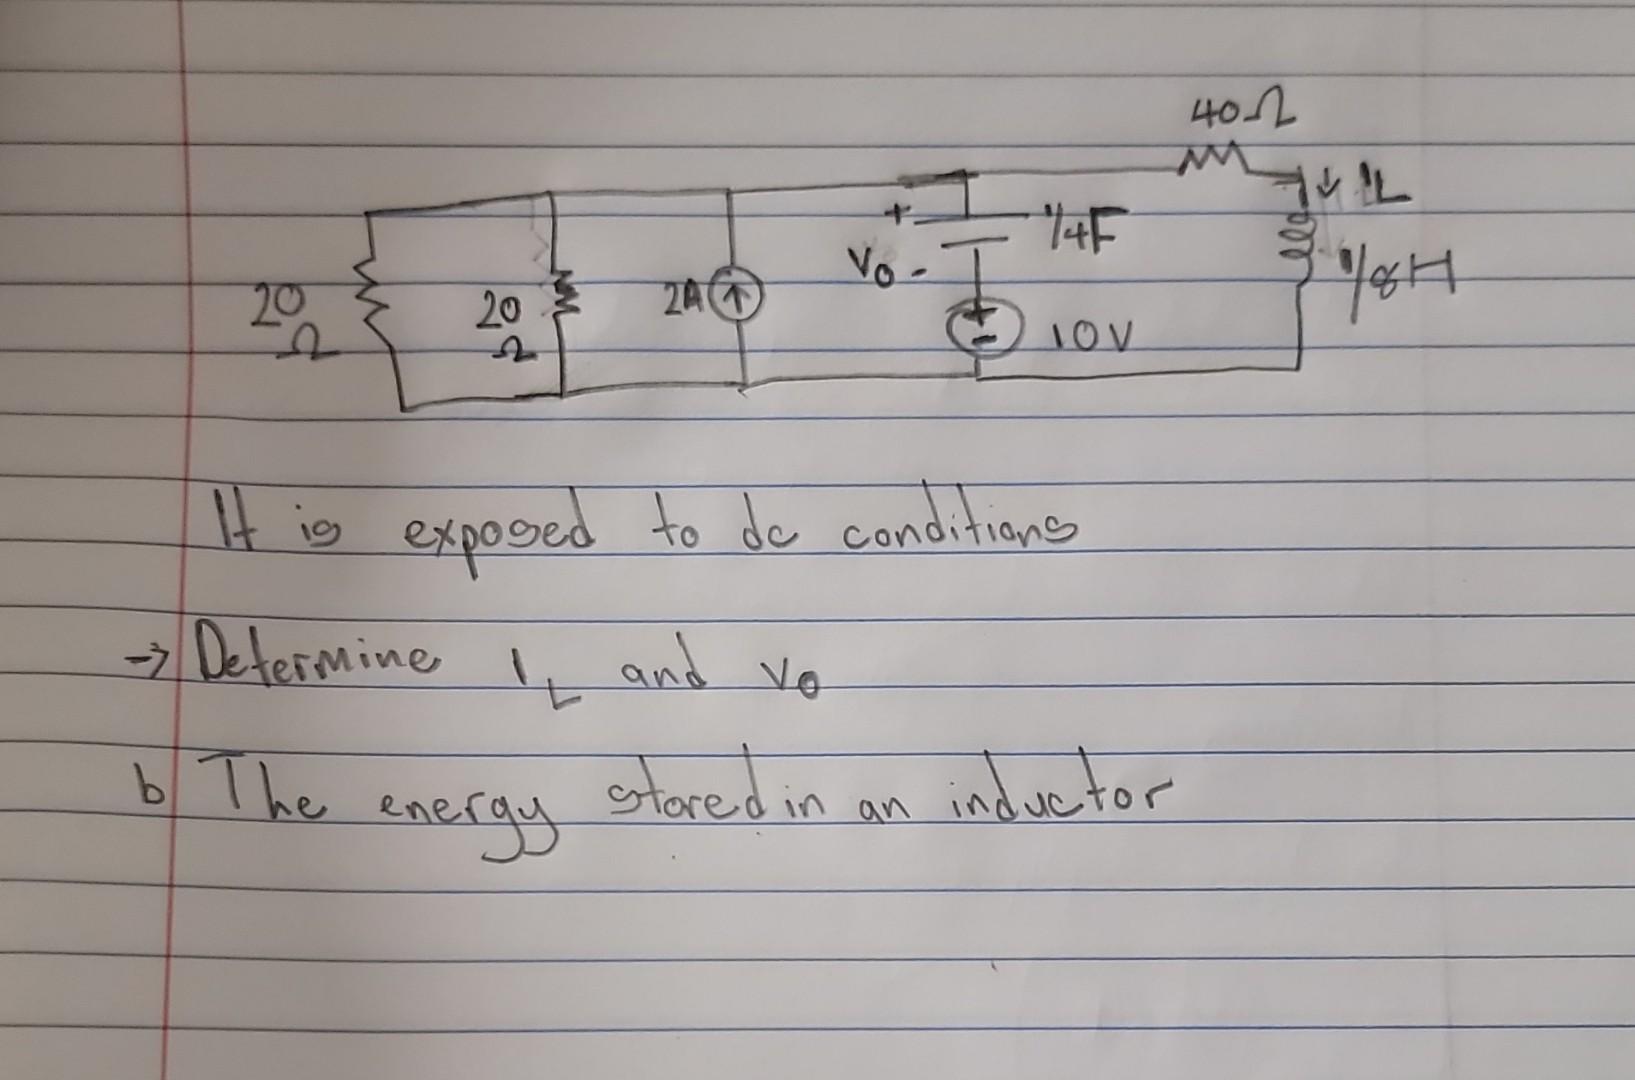 40Ω
↓ IL
+
1/4F
Vo -
1/8H
20
Ω
20
Ω
2A
+
-
10V
It is exposed to dc conditions
→ Determine IL and Vo
b The energy stored in an inductor